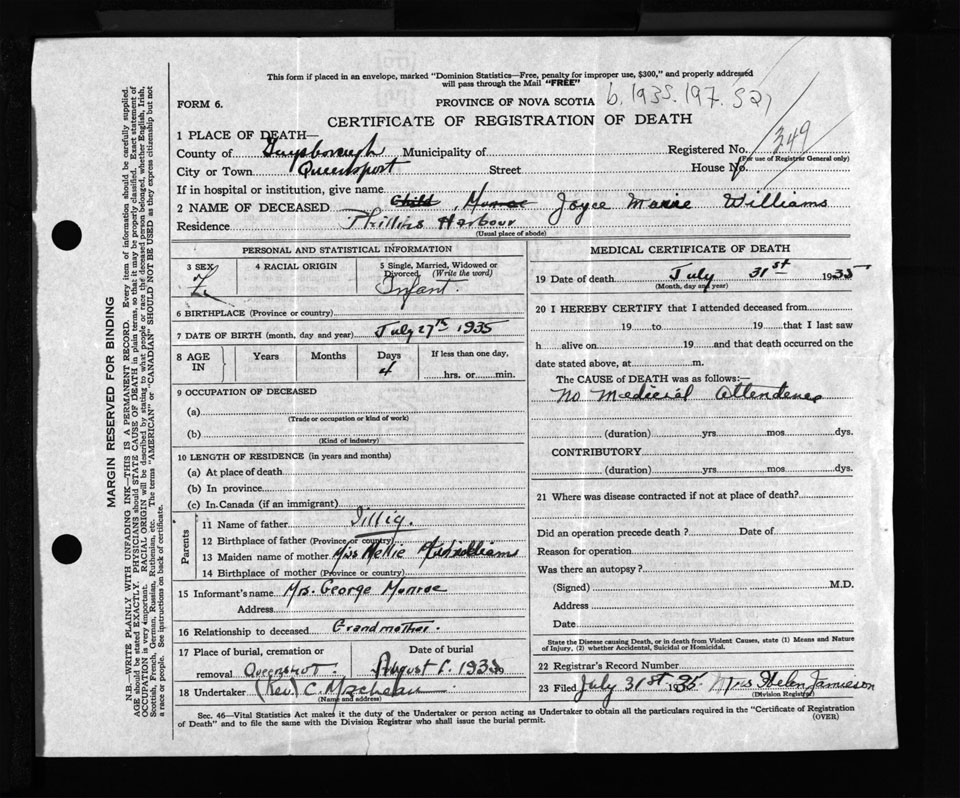 This form if placed in an envelope, marked "Dominion Statistics—Free, penalty for improper use, $300," and properly addressed
will pass through the Mail "FREE"
b. 1935. 197. 521
FORM 6.
PROVINCE OF NOVA SCOTIA
CERTIFICATE OF REGISTRATION OF DEATH
349
1 PLACE OF DEATH—
County of Guysborough Municipality of
Registered No.
(For use of Registrar General only)
City or Town Queensport Street House No.
If in hospital or institution, give name
2 NAME OF DECEASED Child Monroe Joyce Marie Williams
Residence Phillips Harbour
(Usual place of abode)
PERSONAL AND STATISTICAL INFORMATION
3 SEX
4 RACIAL ORIGIN
5 Single, Married, Widowed or
Divorced (Write the word)
F.
Infant.
6 BIRTHPLACE (Province or country)
7 DATE OF BIRTH (month, day and year) July 27th 1935
8 AGE IN
Years Months Days If less than one day,
4 hrs. or min.
9 OCCUPATION OF DECEASED
(a)
(Trade or occupation or kind of work)
(b)
(Kind of industry)
10 LENGTH OF RESIDENCE (in years and months)
(a) At place of death
(b) In province
(c) In Canada (if an immigrant)
Parents
11 Name of father Illig.
12 Birthplace of father (Province or country)
13 Maiden name of mother Miss Nellie Williams
14 Birthplace of mother (Province or country)
15 Informant's name Mrs. George Monroe
Address
16 Relationship to deceased Grandmother.
17 Place of burial, cremation or Date of burial
removal Queensport. August 1. 1935
18 Undertaker (Rev) C.
(Name and address)
MEDICAL CERTIFICATE OF DEATH
19 Date of death July 31st 1935
(Month, day and year)
20 I HEREBY CERTIFY that I attended deceased from
19 to 19 that I last saw
h alive on 19 and that death occurred on the
date stated above, at m.
The CAUSE of DEATH was as follows:—
No Medicial Attendence
(duration) yrs. mos. dys.
CONTRIBUTORY
(duration) yrs. mos. dys.
21 Where was disease contracted if not at place of death?
Did an operation precede death? Date of
Reason for operation
Was there an autopsy?
(Signed) M.D.
Address
Date
State the Disease causing Death, or in death from Violent Causes, state (1) Means and Nature
of Injury, (2) whether Accidental, Suicidal or Homicidal.
22 Registrar's Record Number
23 Filed July 31st 1935. Mrs Helen Jamieson
(Division Registrar)
Sec. 46—Vital Statistics Act makes it the duty of the Undertaker or person acting as Undertaker to obtain all the particulars required in the "Certificate of Registration
of Death" and to file the same with the Division Registrar who shall issue the burial permit.
(OVER)
MARGIN RESERVED FOR BINDING
N.B.—WRITE PLAINLY WITH UNFADING INK—THIS IS A PERMANENT RECORD. Every item of information should be carefully supplied.
AGE should be stated EXACTLY. PHYSICIANS should STATE CAUSE OF DEATH in plain terms, so that it may be properly classified. Exact statement of
OCCUPATION is very important. RACIAL ORIGIN will be described by stating to what people or race the deceased person belonged, whether English, Irish,
Scottish, French, German, Russian, Ruthenian, etc. The terms "AMERICAN" or "CANADIAN" SHOULD NOT BE USED as they express citizenship but not
a race or people. See instructions on back of certificate.